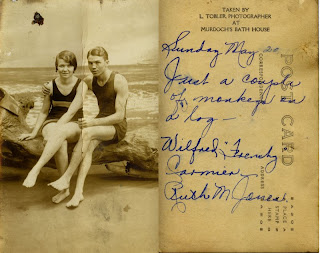 TAKEN BY
L. TOBLER PHOTOGRAPHER
AT
MURDOCH'S BATH HOUSE
Sunday May 20
Just a couple
of monkeys on
a log—
Wilfred "Frenchy"
Cormier
Ruth M.
POST CARD
CORRESPONDENCE
ADDRESS
PLACE
STAMP
HERE